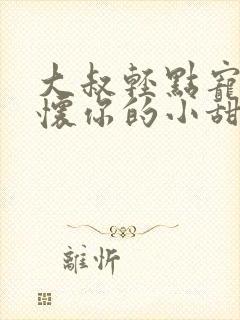 大叔輕點寵
懷你的小甜
離忻